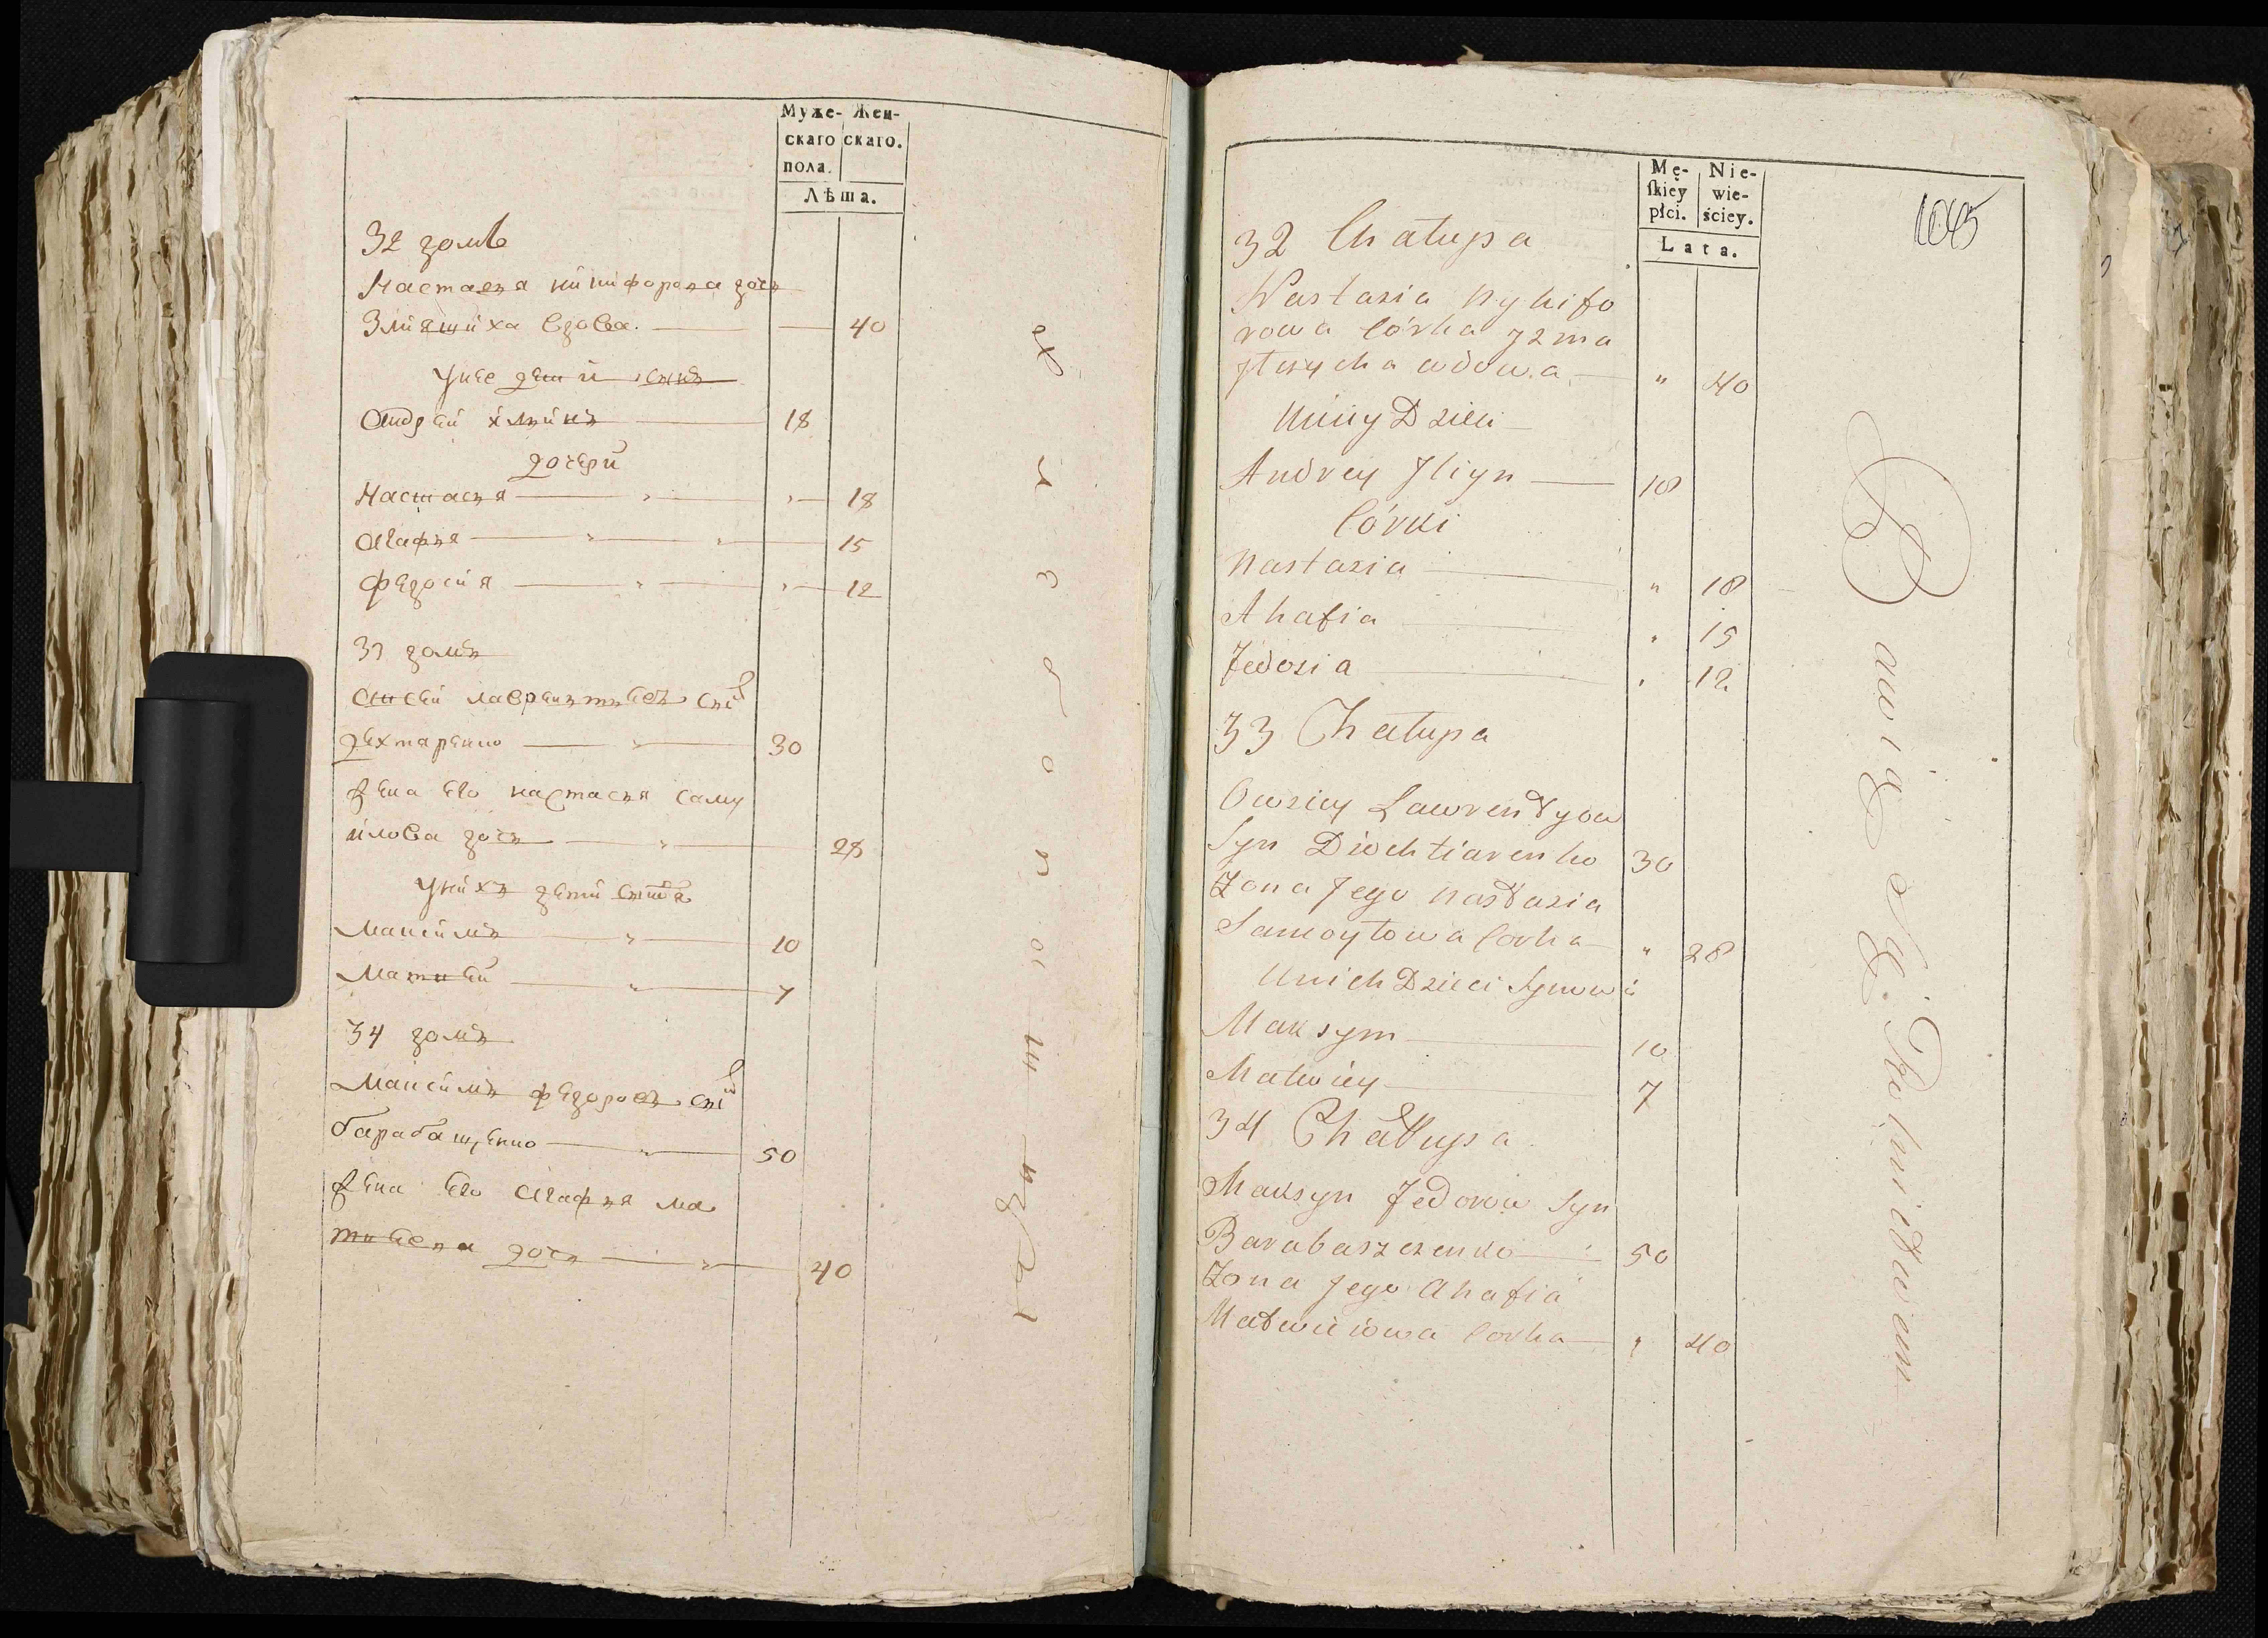 Муже- Жен-
скаго скаго.
пола.
Лѣта.
32 домъ
Настася никифорова дочь
вдова. 40
унее дети сынъ
Андрей илинъ 18
дочери
Настася 18
Агафья 15
Федосия 12
33 домъ
лаврентьевъ сынъ
дехтяренко 30
жена Его настася саму
илова дочь 28
унихъ дети
Максимъ 10
Матвей 7
34 домъ
Максимъ федоровъ сынъ
барабащенко 50
жена Его Агафья ма
твеева дочь 40
Mę- Nie-
skiey wie-
płci. ściey.
Lata.
1045
32 Chałupa
Nastazia Nykifo
rowa Córka Jzma
wdowa " 40
Uniiy Dzieci
Andrey Jliyn 18
Córki
Nastazia " 18
Ahafia " 15
Fedosia " 12
33 Chałupa
Owsiey Lawrentyow
Syn Diochtiarenko 30
Żona Jego Nastazia
Samoyłowa Corka " 28
Unich Dzieci Synowi
Maksym 10
Matwiey 7
34 Chałupa
Maksyn Fedorow Syn
Barabaszczenko 50
Żona Jego Ahafia
Matwieiowa Corka " 40